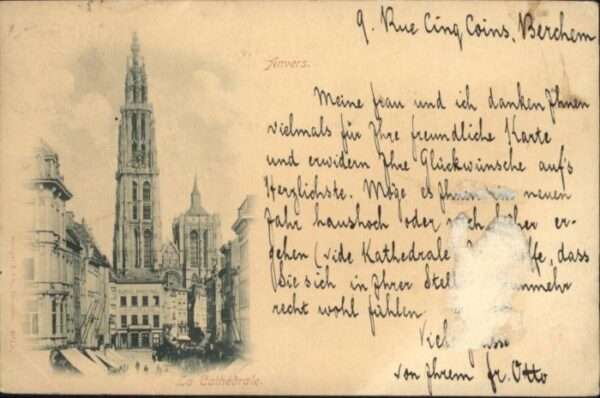 9. Rue Cinq Coins, Berchem
Anvers.
Meine frau und ich danken Ihnen
vielmals für Ihre freundliche Karte
und erwidern Ihre Glückwünsche auf's
Herzlichste. Möge es Ihnen im neuen
Jahr haushoch oder noch höher er-
gehen (vide Kathedrale dass
Sie sich in Ihrer Stell nunmehr
recht wohl fühlen.
Viel
von Ihrem fr. Otto
La Cathédrale.